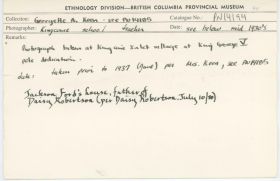 ETHNOLOGY DIVISION—BRITISH COLUMBIA PROVINCIAL MUSEUM
Collection: Georgette A. Keen, see AUPN805 Catalogue No.: PN14194
Photographer: Kingcome school teacher Date: see below, mid 1930's
Remarks:
Photograph taken at Kingcome Inlet village at King George V
pole dedication.
date: taken prior to 1937 (June) per Mrs. Keen, see AUPN805
Jackson Ford's house, father of
Daisy Robertson (per Daisy Robertson, July 10/80)